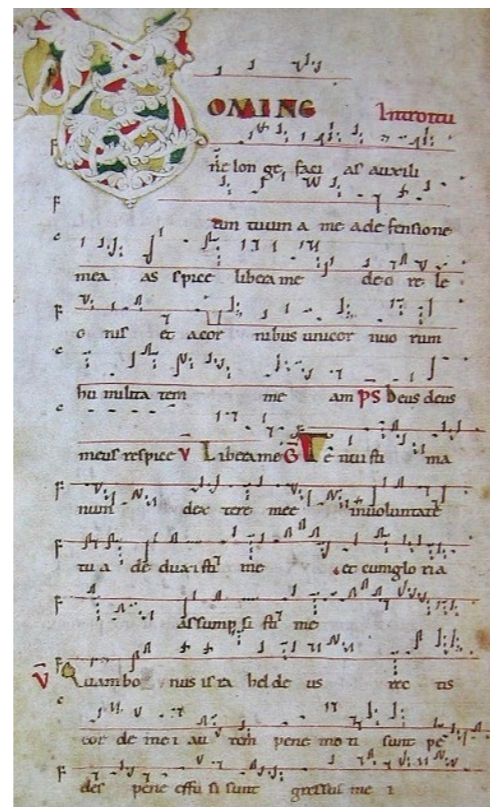 OMINE Introitu
ne lon ge faci as auxili
um tuum a me ad de fensione
mea as spice libera me de o re le
o nis et acor nibus unicor nuo rum
hu milita tem me am ps Deus deus
meus respice v Libera me G Te nui sti ma
num dex tere mee in uoluntate
tu a de duxi sti me et cum glo ria
as sump si sti me
v Quam bo nus is ra hel de us rec tis
cor de me i au tem pene mo ti sunt pe
des pene effu si sunt gressus me i